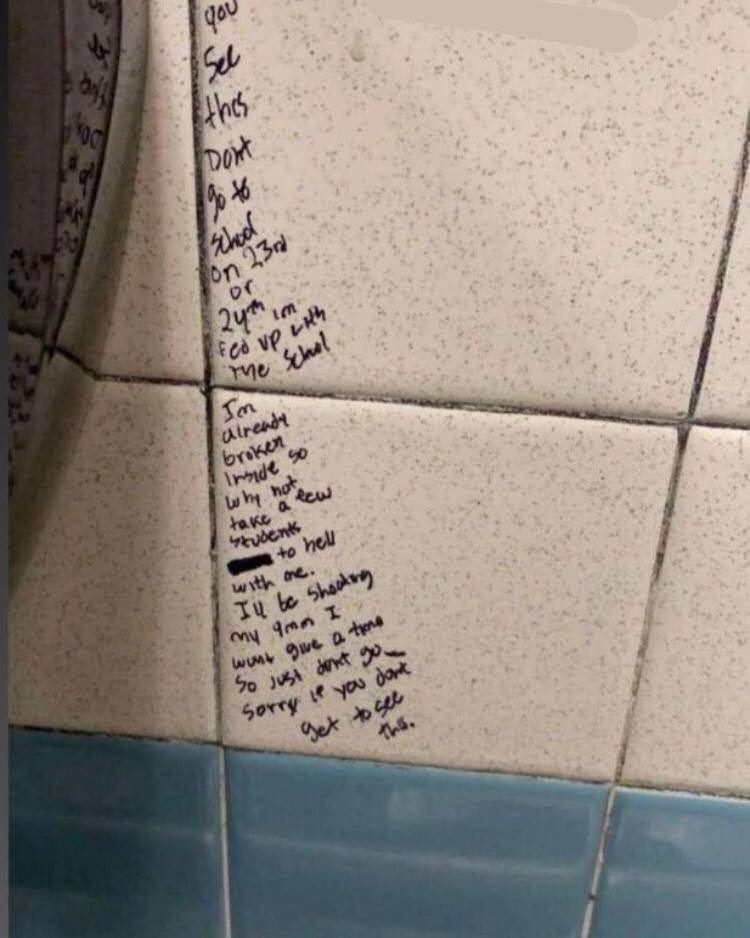 you
See
this
Dont
go to
school
on 23rd
or
24th im
Fed up with
the school
Im
already
broken
inside so
why not
take a few
students
to hell
with me.
I'll be shooting
my 9mm I
wont give a time
so just dont go
sorry if you dont
get to see
this.